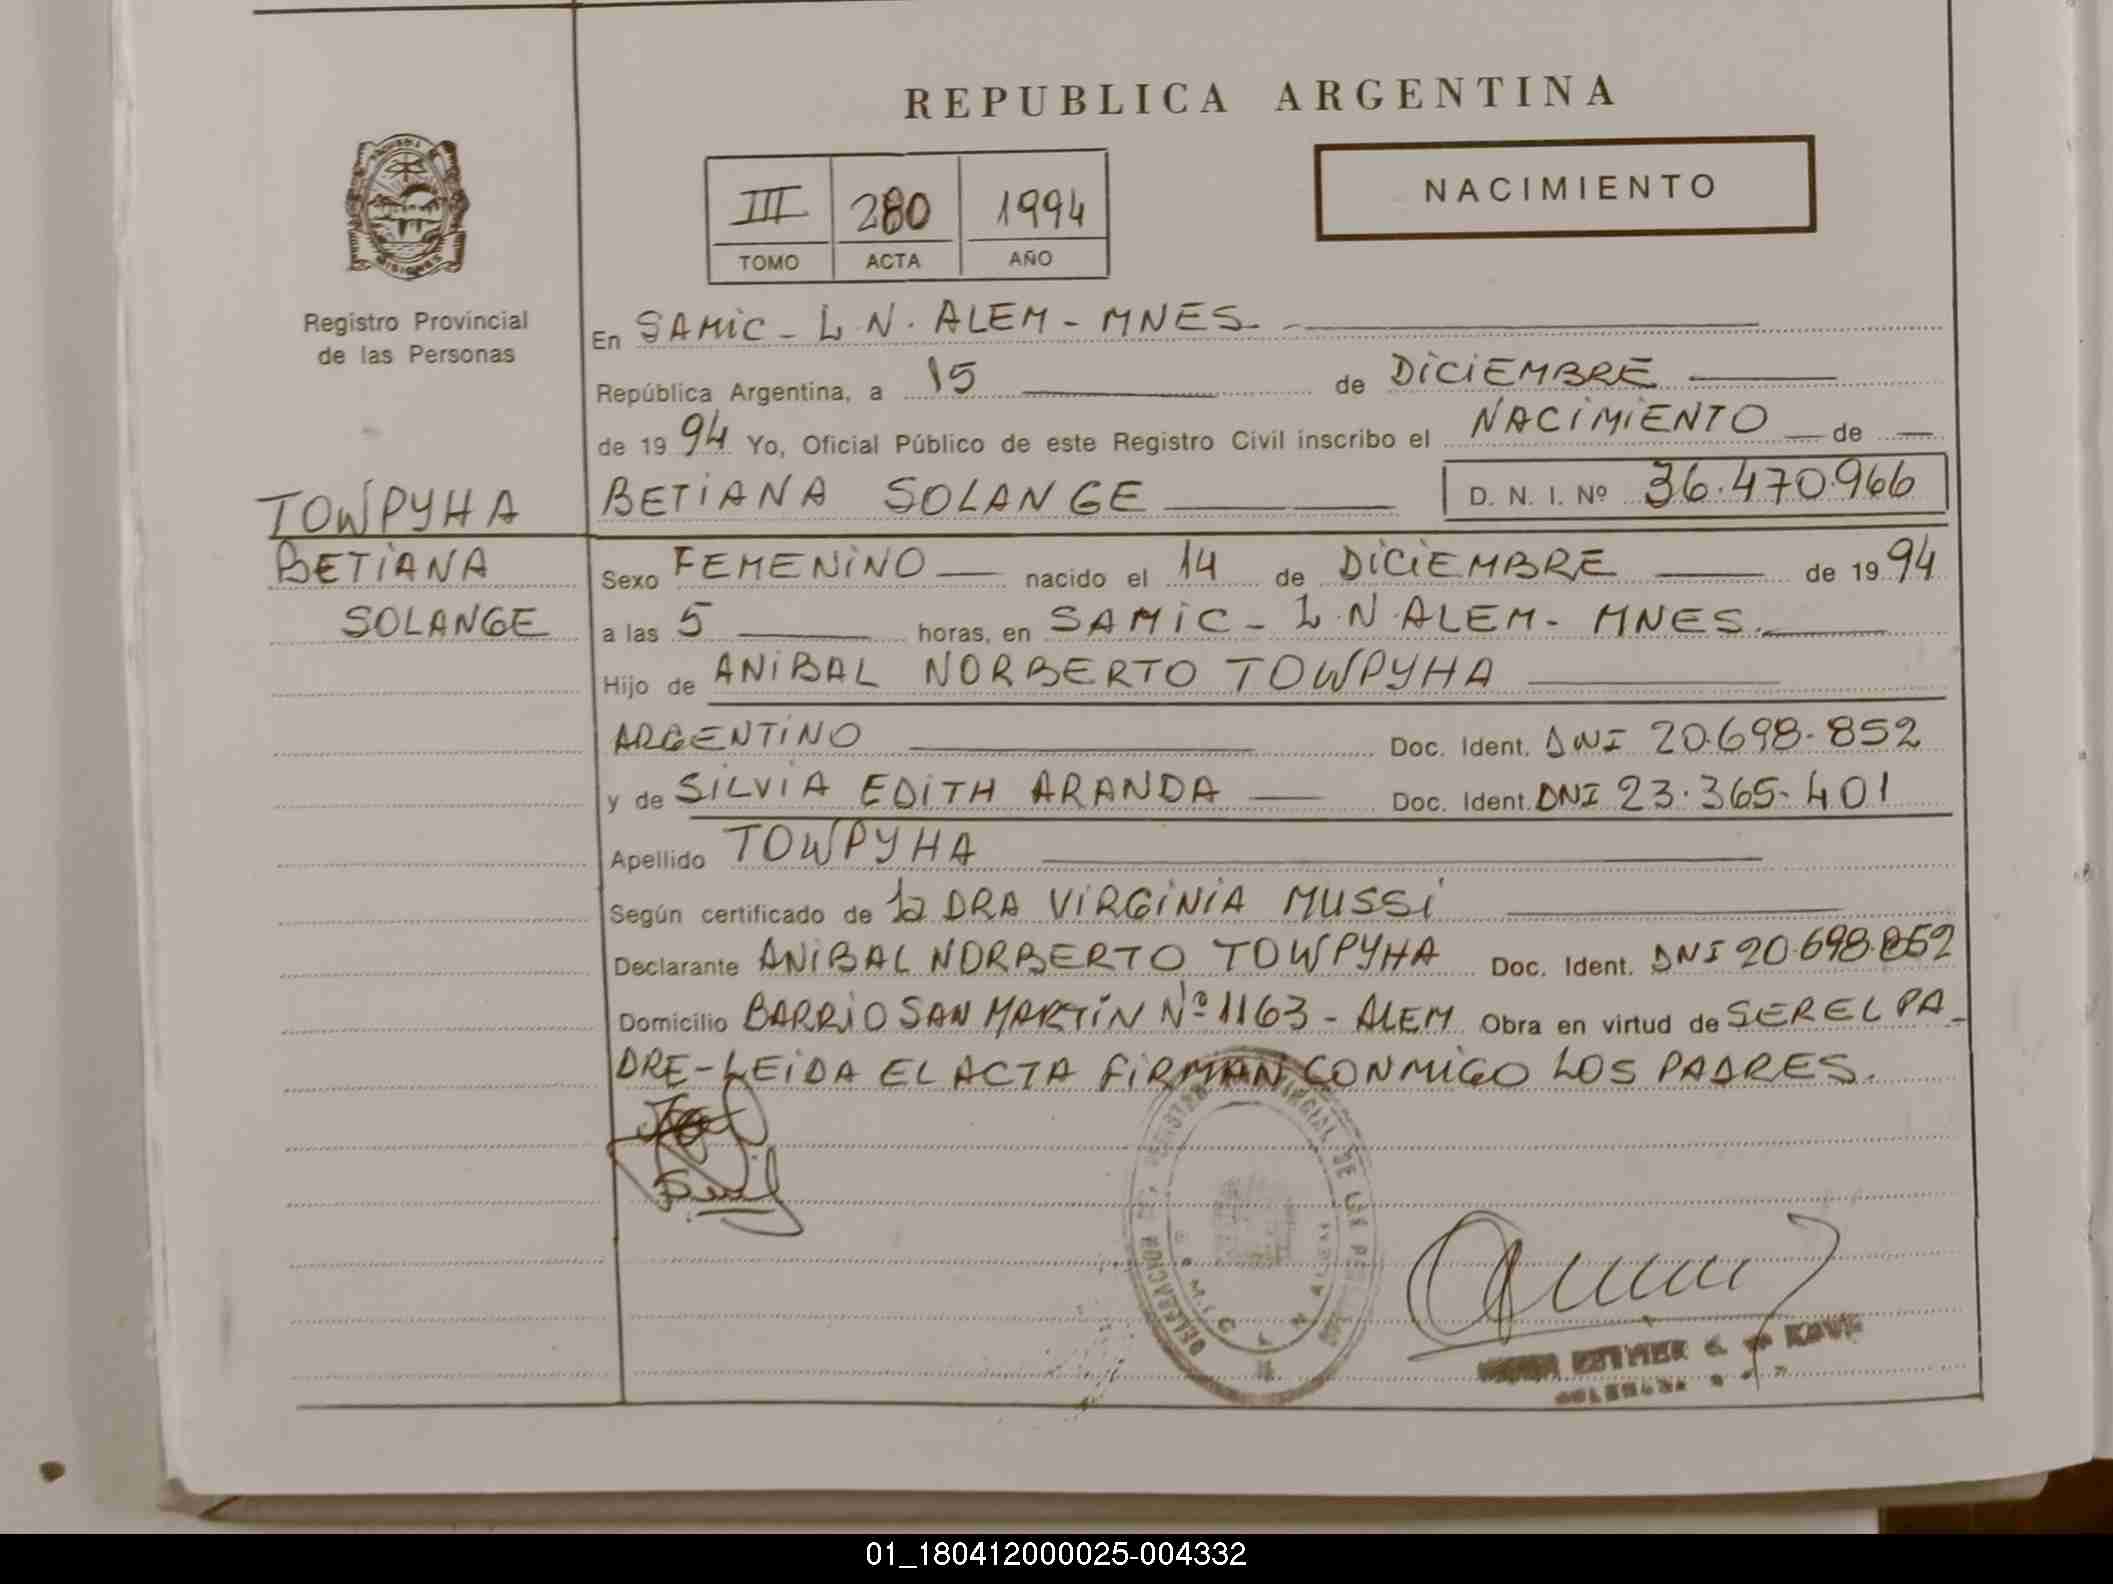 REPUBLICA ARGENTINA
NACIMIENTO
III 280 1994
TOMO ACTA AÑO
MISIONES
Registro Provincial
de las Personas
En SAMIC - L.N. ALEM - MNES.
República Argentina, a 15 de DICIEMBRE
de 1994 Yo, Oficial Público de este Registro Civil inscribo el NACIMIENTO de
TOWPYHA BETIANA SOLANGE D. N. I. Nº 36.470.966
BETIANA Sexo FEMENINO nacido el 14 de DICIEMBRE de 1994
SOLANGE a las 5 horas, en SAMIC - L.N. ALEM - MNES.
Hijo de ANIBAL NORBERTO TOWPYHA
ARGENTINO Doc. Ident. DNI 20.698.852
y de SILVIA EDITH ARANDA Doc. Ident. DNI 23.365.401
Apellido TOWPYHA
Según certificado de la DRA VIRGINIA MUSSI
Declarante ANIBAL NORBERTO TOWPYHA Doc. Ident. DNI 20.698.852
Domicilio BARRIO SAN MARTÍN Nº 1163 - ALEM Obra en virtud de SER EL PA-
DRE - LEIDA EL ACTA FIRMAN CONMIGO LOS PADRES.
DE LAS
ESTHER
01_180412000025-004332